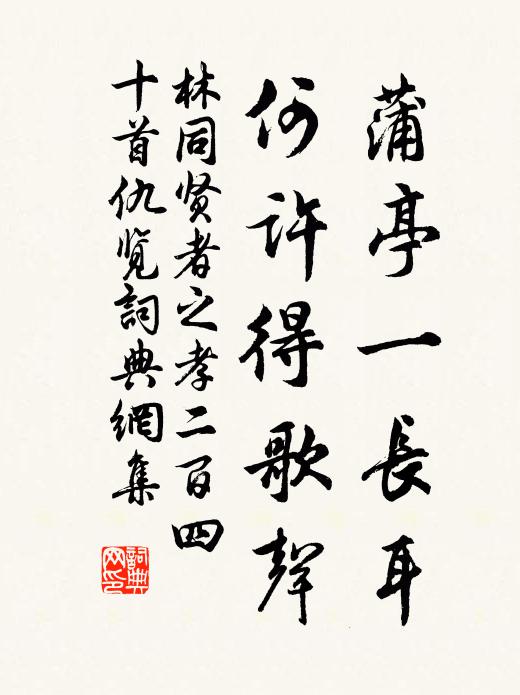 蒲亭一長耳
何許得歌聲
林同贤者之孝二百四
十首仇览詞典網集
詞典网印